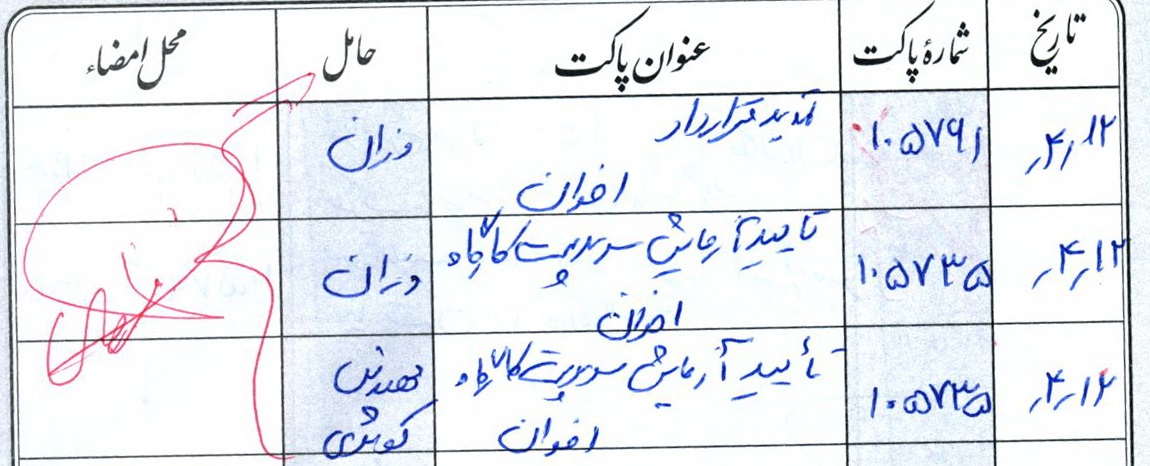 تاریخ شمارهٔ پاکت عنوان پاکت حامل محل امضاء
۴/۱۲ ۱۰۵۷۹۱ تمدید قرارداد
اخوان
۴/۱۲ ۱۰۵۷۳۵ تایید آزمایش سرپرست کارگاه
اخوان
۴/۱۲ ۱۰۵۷۳۵ تأیید آزمایش سرپرست کارگاه مهندس
اخوان